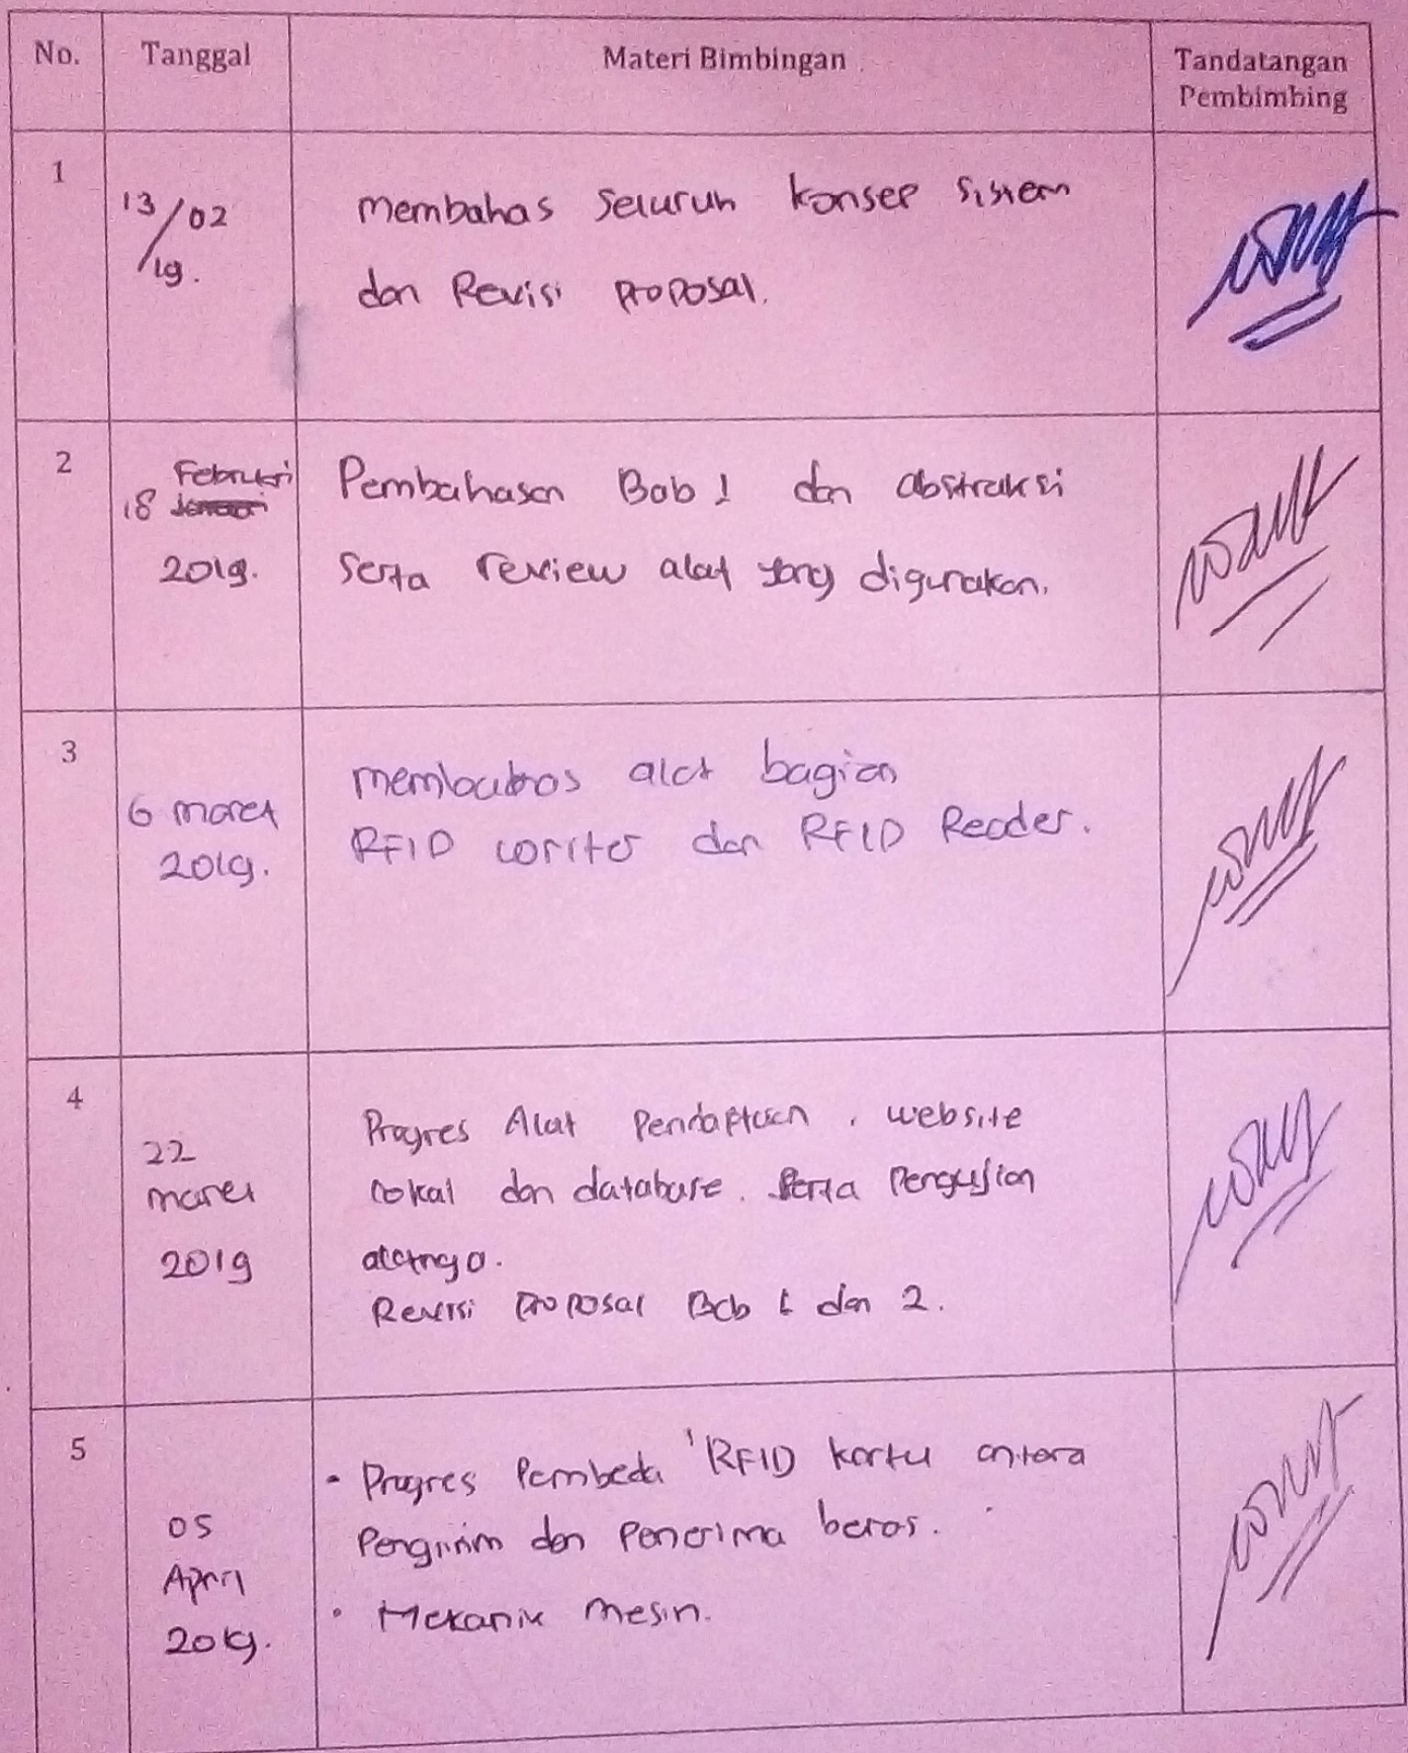 No. Tanggal Materi Bimbingan Tandatangan
Pembimbing
1
13/02
/19.
membahas seluruh konsep sistem
dan Revisi Proposal.
2
Februari
18
2019.
Pembahasan Bab 1 dan abstraksi
serta review alat yang digunakan.
3
6 maret
2019.
membahas alat bagian
RFID writer dan RFID Reader.
4
22
maret
2019
Progres Alat Pendaftaran, website
lokal dan database. serta Pengujian
alatnya.
Revisi Proposal Bab 1 dan 2.
5
05
April
2019.
• Progres Pembeda RFID kartu antara
Pengirim dan Penerima beras.
• Mekanik mesin.